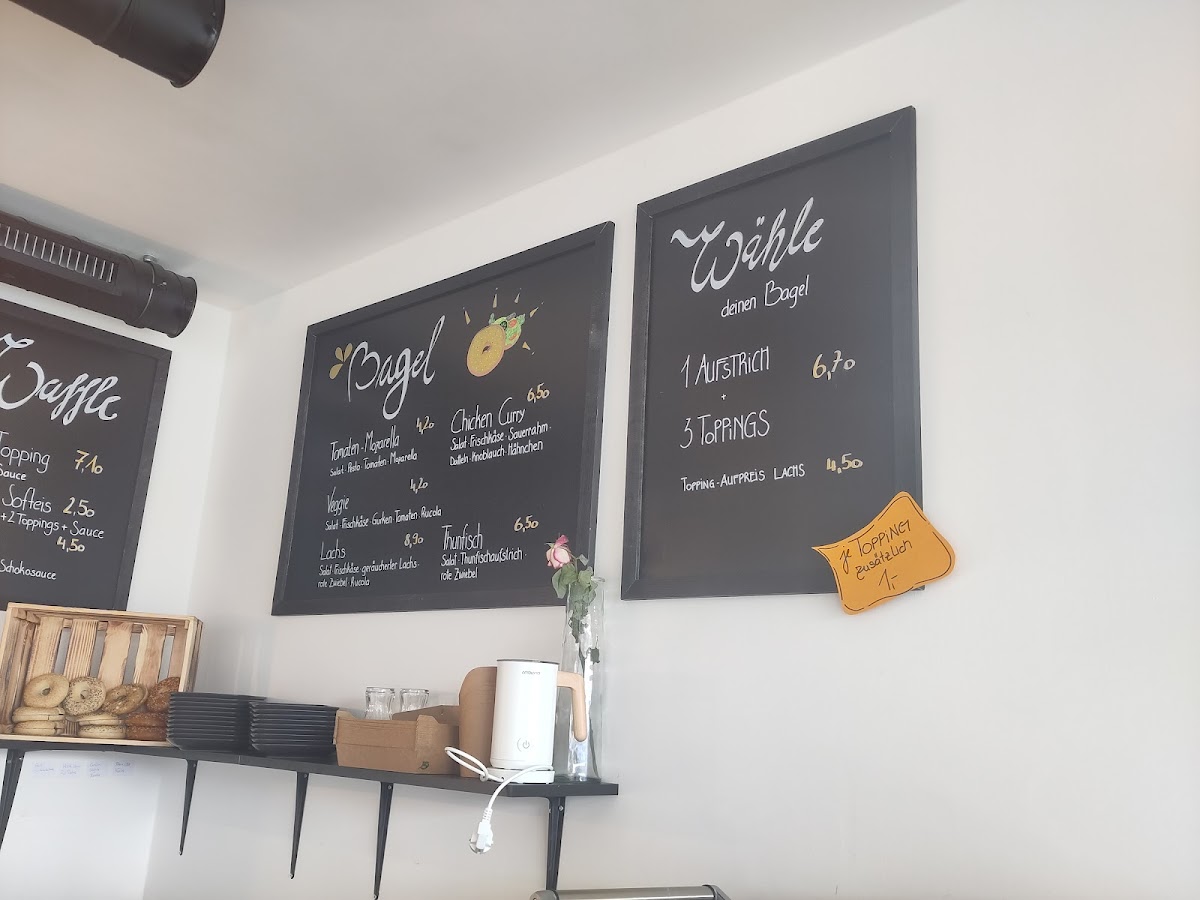 Waffle
Topping 7,10
Sauce
Softeis 2,50
+2 Toppings + Sauce
4,50
Schokosauce
Bagel
4,20
Tomaten-Mozarella
Salat · Pesto · Tomaten · Mozarella
4,20
Veggie
Salat · Frischkäse · Gurken · Tomaten · Rucola
8,90
Lachs
Salat · Frischkäse · geräucherter Lachs ·
rote Zwiebel · Rucola
6,50
Chicken Curry
Salat · Frischkäse · Sauerrahm ·
Datteln · Knoblauch · Hähnchen
6,50
Thunfisch
Salat · Thunfischaufstrich ·
rote Zwiebel
Wähle
deinen Bagel
1 AUFSTRICH 6,70
+
3 TOPPINGS
TOPPING-AUFPREIS LACHS 4,50
je TOPPING
zusätzlich
1,-